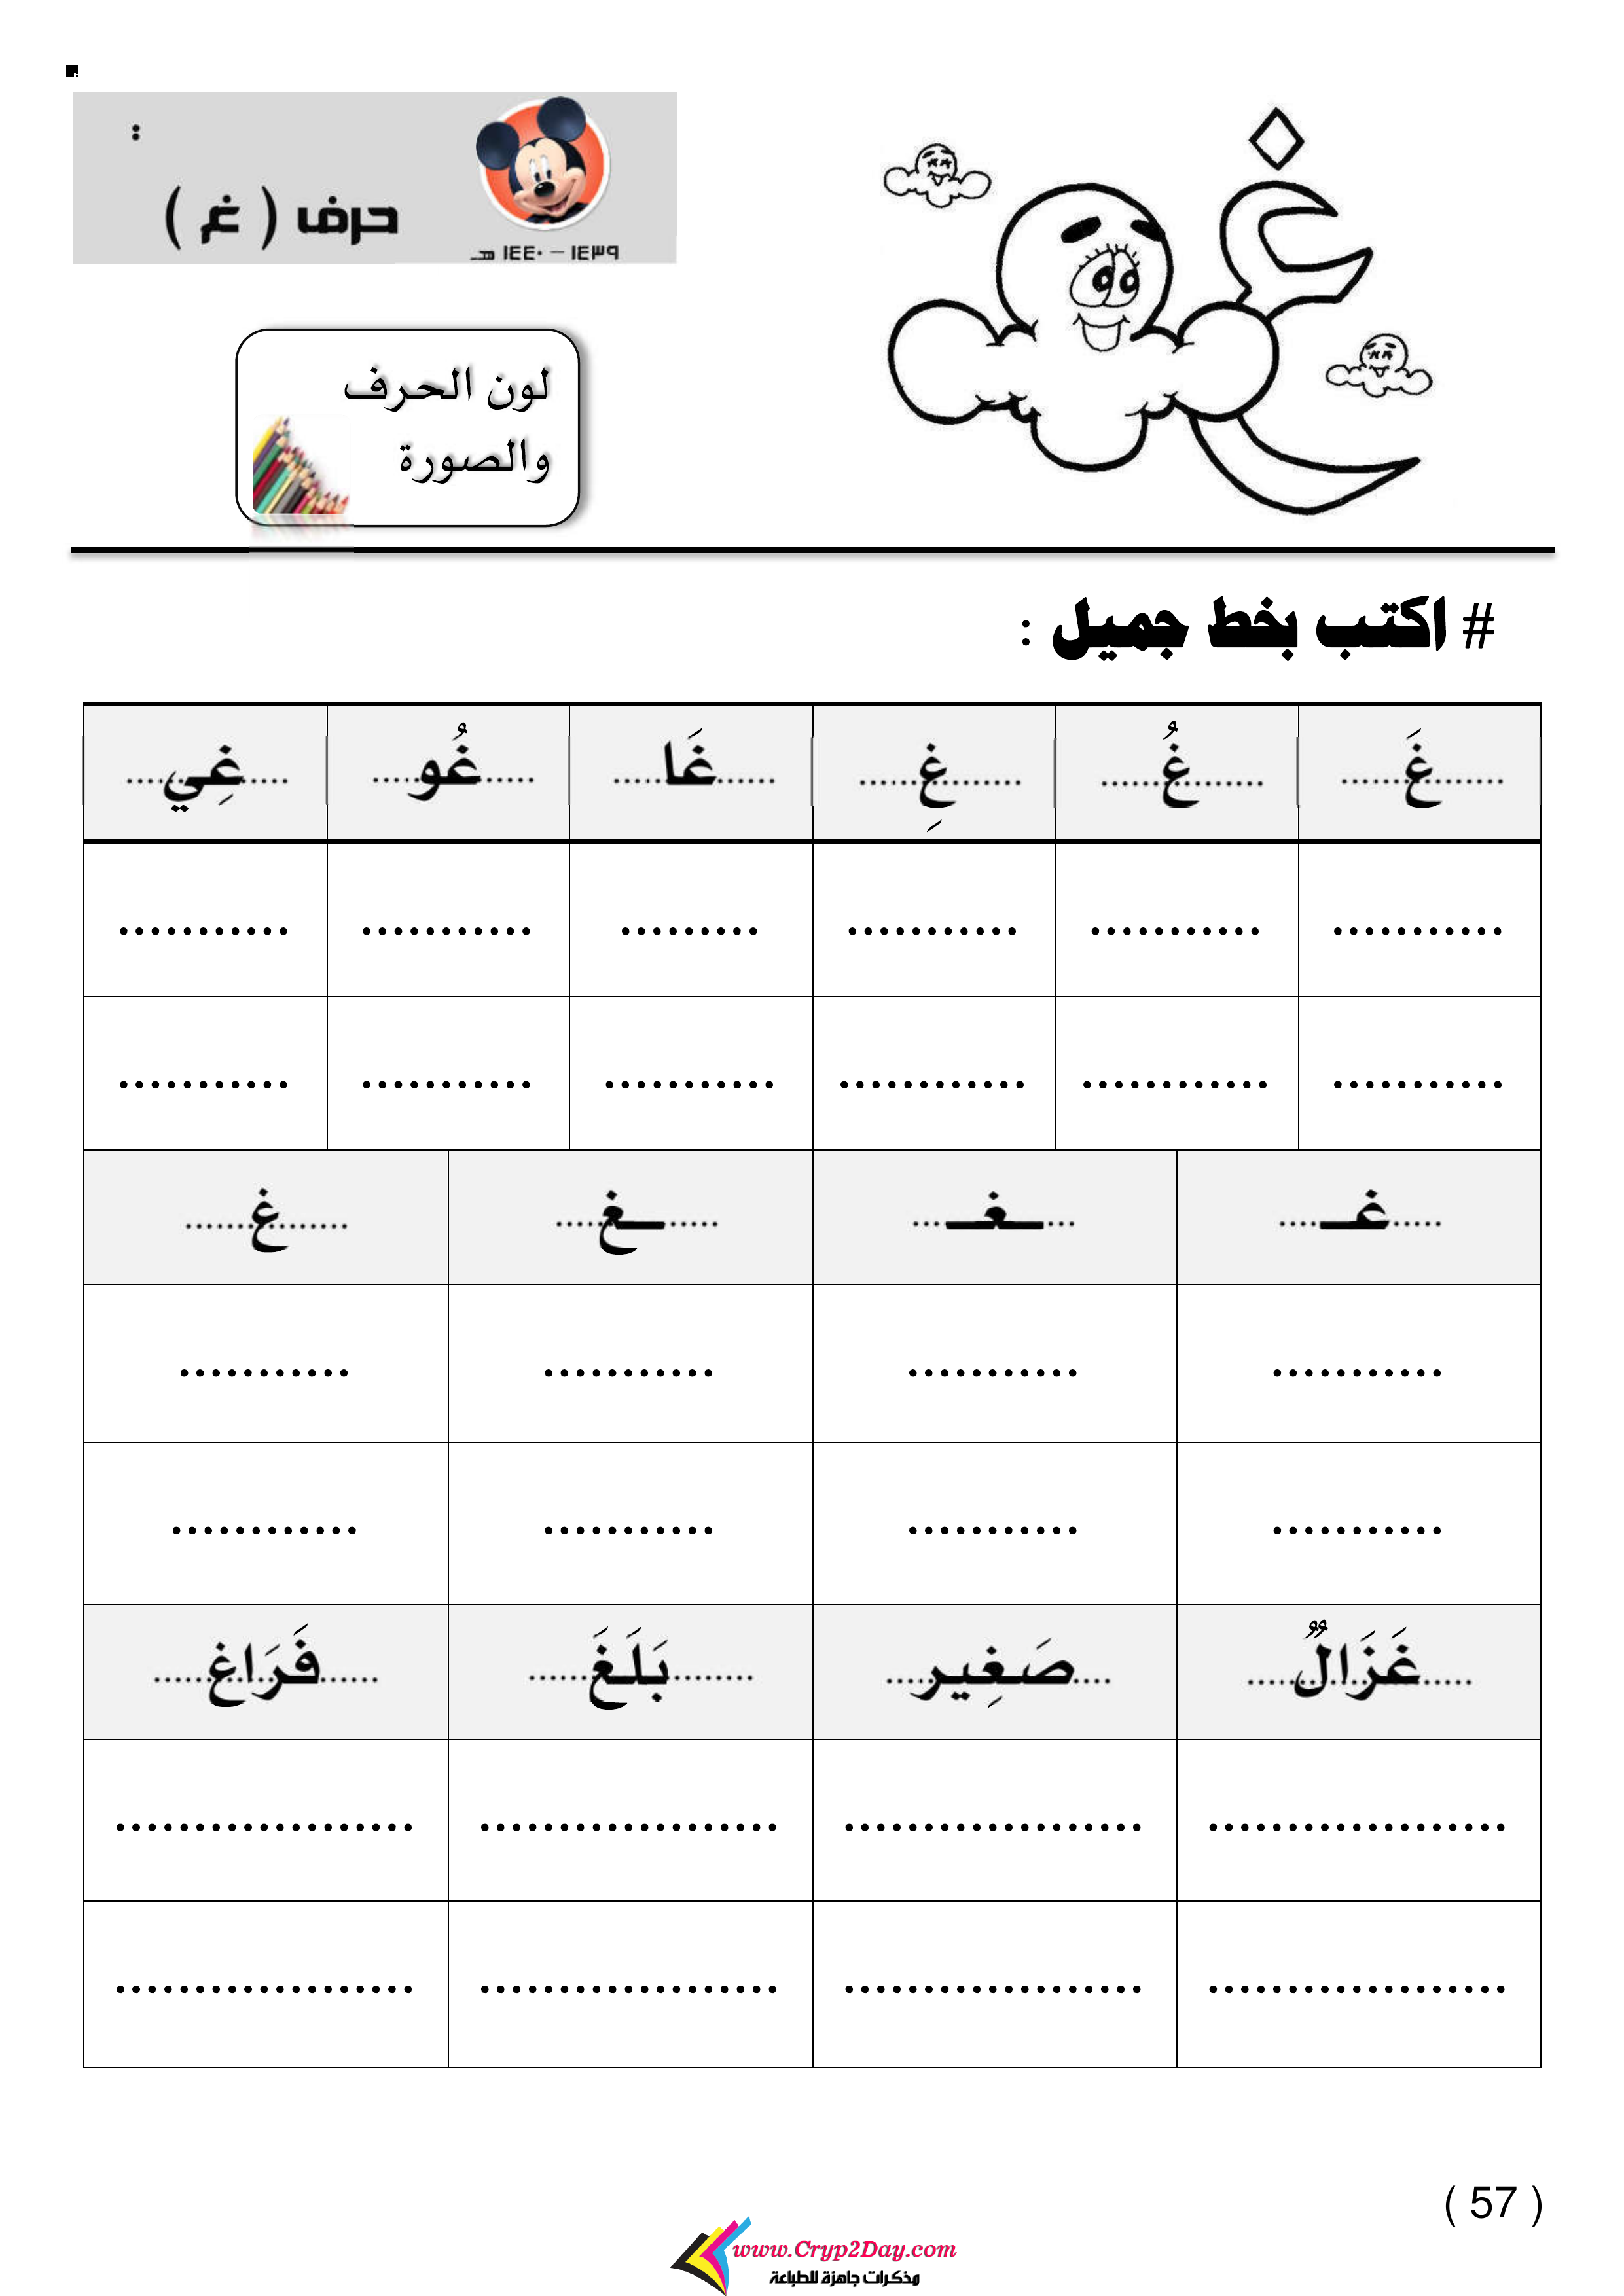 :
حرف ( غ )
١٤٣٩ – ١٤٤٠ هـ
غ
لون الحرف
والصورة
# اكتب بخط جميل :
.......غَ....... .......غُ....... .......غِ....... ......غَا..... ......غُو..... .....غِي.....
........... ........... ........... ......... ........... ...........
........... ............ ............ ........... ........... ...........
.....غـ.... ...ـغـ... .....ـغ.... .......غ......
........... ........... ........... ...........
........... ........... ........... ............
.....غَزَالٌ..... ....صَغِير.... ........بَلَغَ...... ......فَرَاغ.....
................... ................... ................... ...................
................... ................... ................... ...................
( 57 )
www.Cryp2Day.com
مذكرات جاهزة للطباعة